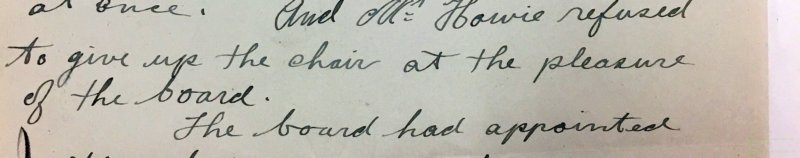 at once. And Mr. Howie refused
to give up the chair at the pleasure
of the board.
The board had appointed